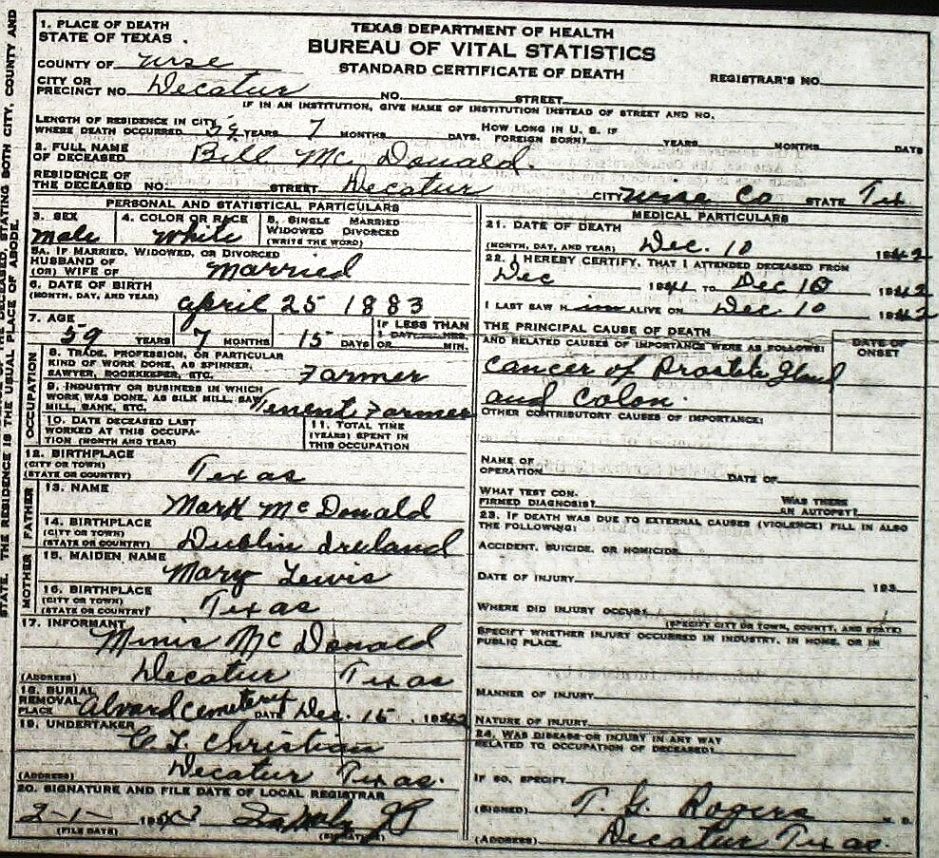 STATE. THE RESIDENCE IS THE USUAL PLACE OF ABODE. THE DECEASED, STATING BOTH CITY, COUNTY AND
TEXAS DEPARTMENT OF HEALTH
BUREAU OF VITAL STATISTICS
STANDARD CERTIFICATE OF DEATH
1. PLACE OF DEATH
STATE OF TEXAS
COUNTY OF Wise
REGISTRAR'S NO.
CITY OR PRECINCT NO. Decatur NO. STREET
IF IN AN INSTITUTION, GIVE NAME OF INSTITUTION INSTEAD OF STREET AND NO.
LENGTH OF RESIDENCE IN CITY WHERE DEATH OCCURRED 59 YEARS 7 MONTHS DAYS. HOW LONG IN U. S. IF FOREIGN BORN? YEARS MONTHS DAYS
2. FULL NAME OF DECEASED Bill McDonald
RESIDENCE OF THE DECEASED NO. STREET Decatur CITY Wise Co STATE Tex
PERSONAL AND STATISTICAL PARTICULARS
3. SEX male 4. COLOR OR RACE White 5. SINGLE MARRIED WIDOWED DIVORCED (WRITE THE WORD)
5A. IF MARRIED, WIDOWED, OR DIVORCED
HUSBAND OF (OR) WIFE OF Married
6. DATE OF BIRTH (MONTH, DAY, AND YEAR) april 25 1883
7. AGE 59 YEARS 7 MONTHS 15 DAYS IF LESS THAN 1 DAY HRS. OR MIN.
OCCUPATION
8. TRADE, PROFESSION, OR PARTICULAR KIND OF WORK DONE, AS SPINNER, SAWYER, BOOKKEEPER, ETC. Farmer
9. INDUSTRY OR BUSINESS IN WHICH WORK WAS DONE, AS SILK MILL, SAW MILL, BANK, ETC. Tenent Farmer
10. DATE DECEASED LAST WORKED AT THIS OCCUPATION (MONTH AND YEAR)
11. TOTAL TIME (YEARS) SPENT IN THIS OCCUPATION
12. BIRTHPLACE (CITY OR TOWN) (STATE OR COUNTRY) Texas
FATHER
13. NAME Mark McDonald
14. BIRTHPLACE (CITY OR TOWN) (STATE OR COUNTRY) Dublin Ireland
MOTHER
15. MAIDEN NAME Mary Lewis
16. BIRTHPLACE (CITY OR TOWN) (STATE OR COUNTRY) Texas
17. INFORMANT Minis McDonald
(ADDRESS) Decatur Texas
18. BURIAL REMOVAL PLACE Alvord Cemetery DATE Dec. 15, 1942
19. UNDERTAKER C L Christian
(ADDRESS) Decatur Texas.
20. SIGNATURE AND FILE DATE OF LOCAL REGISTRAR
2-1- 1943
(FILE DATE) (SIGNATURE)
MEDICAL PARTICULARS
21. DATE OF DEATH (MONTH, DAY, AND YEAR) Dec. 10 1942
22. I HEREBY CERTIFY, THAT I ATTENDED DECEASED FROM
Dec 1941 TO Dec 10 1942
I LAST SAW H im ALIVE ON Dec. 10 1942
THE PRINCIPAL CAUSE OF DEATH AND RELATED CAUSES OF IMPORTANCE WERE AS FOLLOWS: DATE OF ONSET
Cancer of Prostate Gland
and Colon.
OTHER CONTRIBUTORY CAUSES OF IMPORTANCE:
NAME OF OPERATION DATE OF
WHAT TEST CONFIRMED DIAGNOSIS? WAS THERE AN AUTOPSY?
23. IF DEATH WAS DUE TO EXTERNAL CAUSES (VIOLENCE) FILL IN ALSO THE FOLLOWING:
ACCIDENT, SUICIDE, OR HOMICIDE
DATE OF INJURY 193
WHERE DID INJURY OCCUR?
(SPECIFY CITY OR TOWN, COUNTY, AND STATE)
SPECIFY WHETHER INJURY OCCURRED IN INDUSTRY, IN HOME, OR IN PUBLIC PLACE.
MANNER OF INJURY
NATURE OF INJURY
24. WAS DISEASE OR INJURY IN ANY WAY RELATED TO OCCUPATION OF DECEASED?
IF SO, SPECIFY
(SIGNED) T. G. Rogers M. D.
(ADDRESS) Decatur Texas.